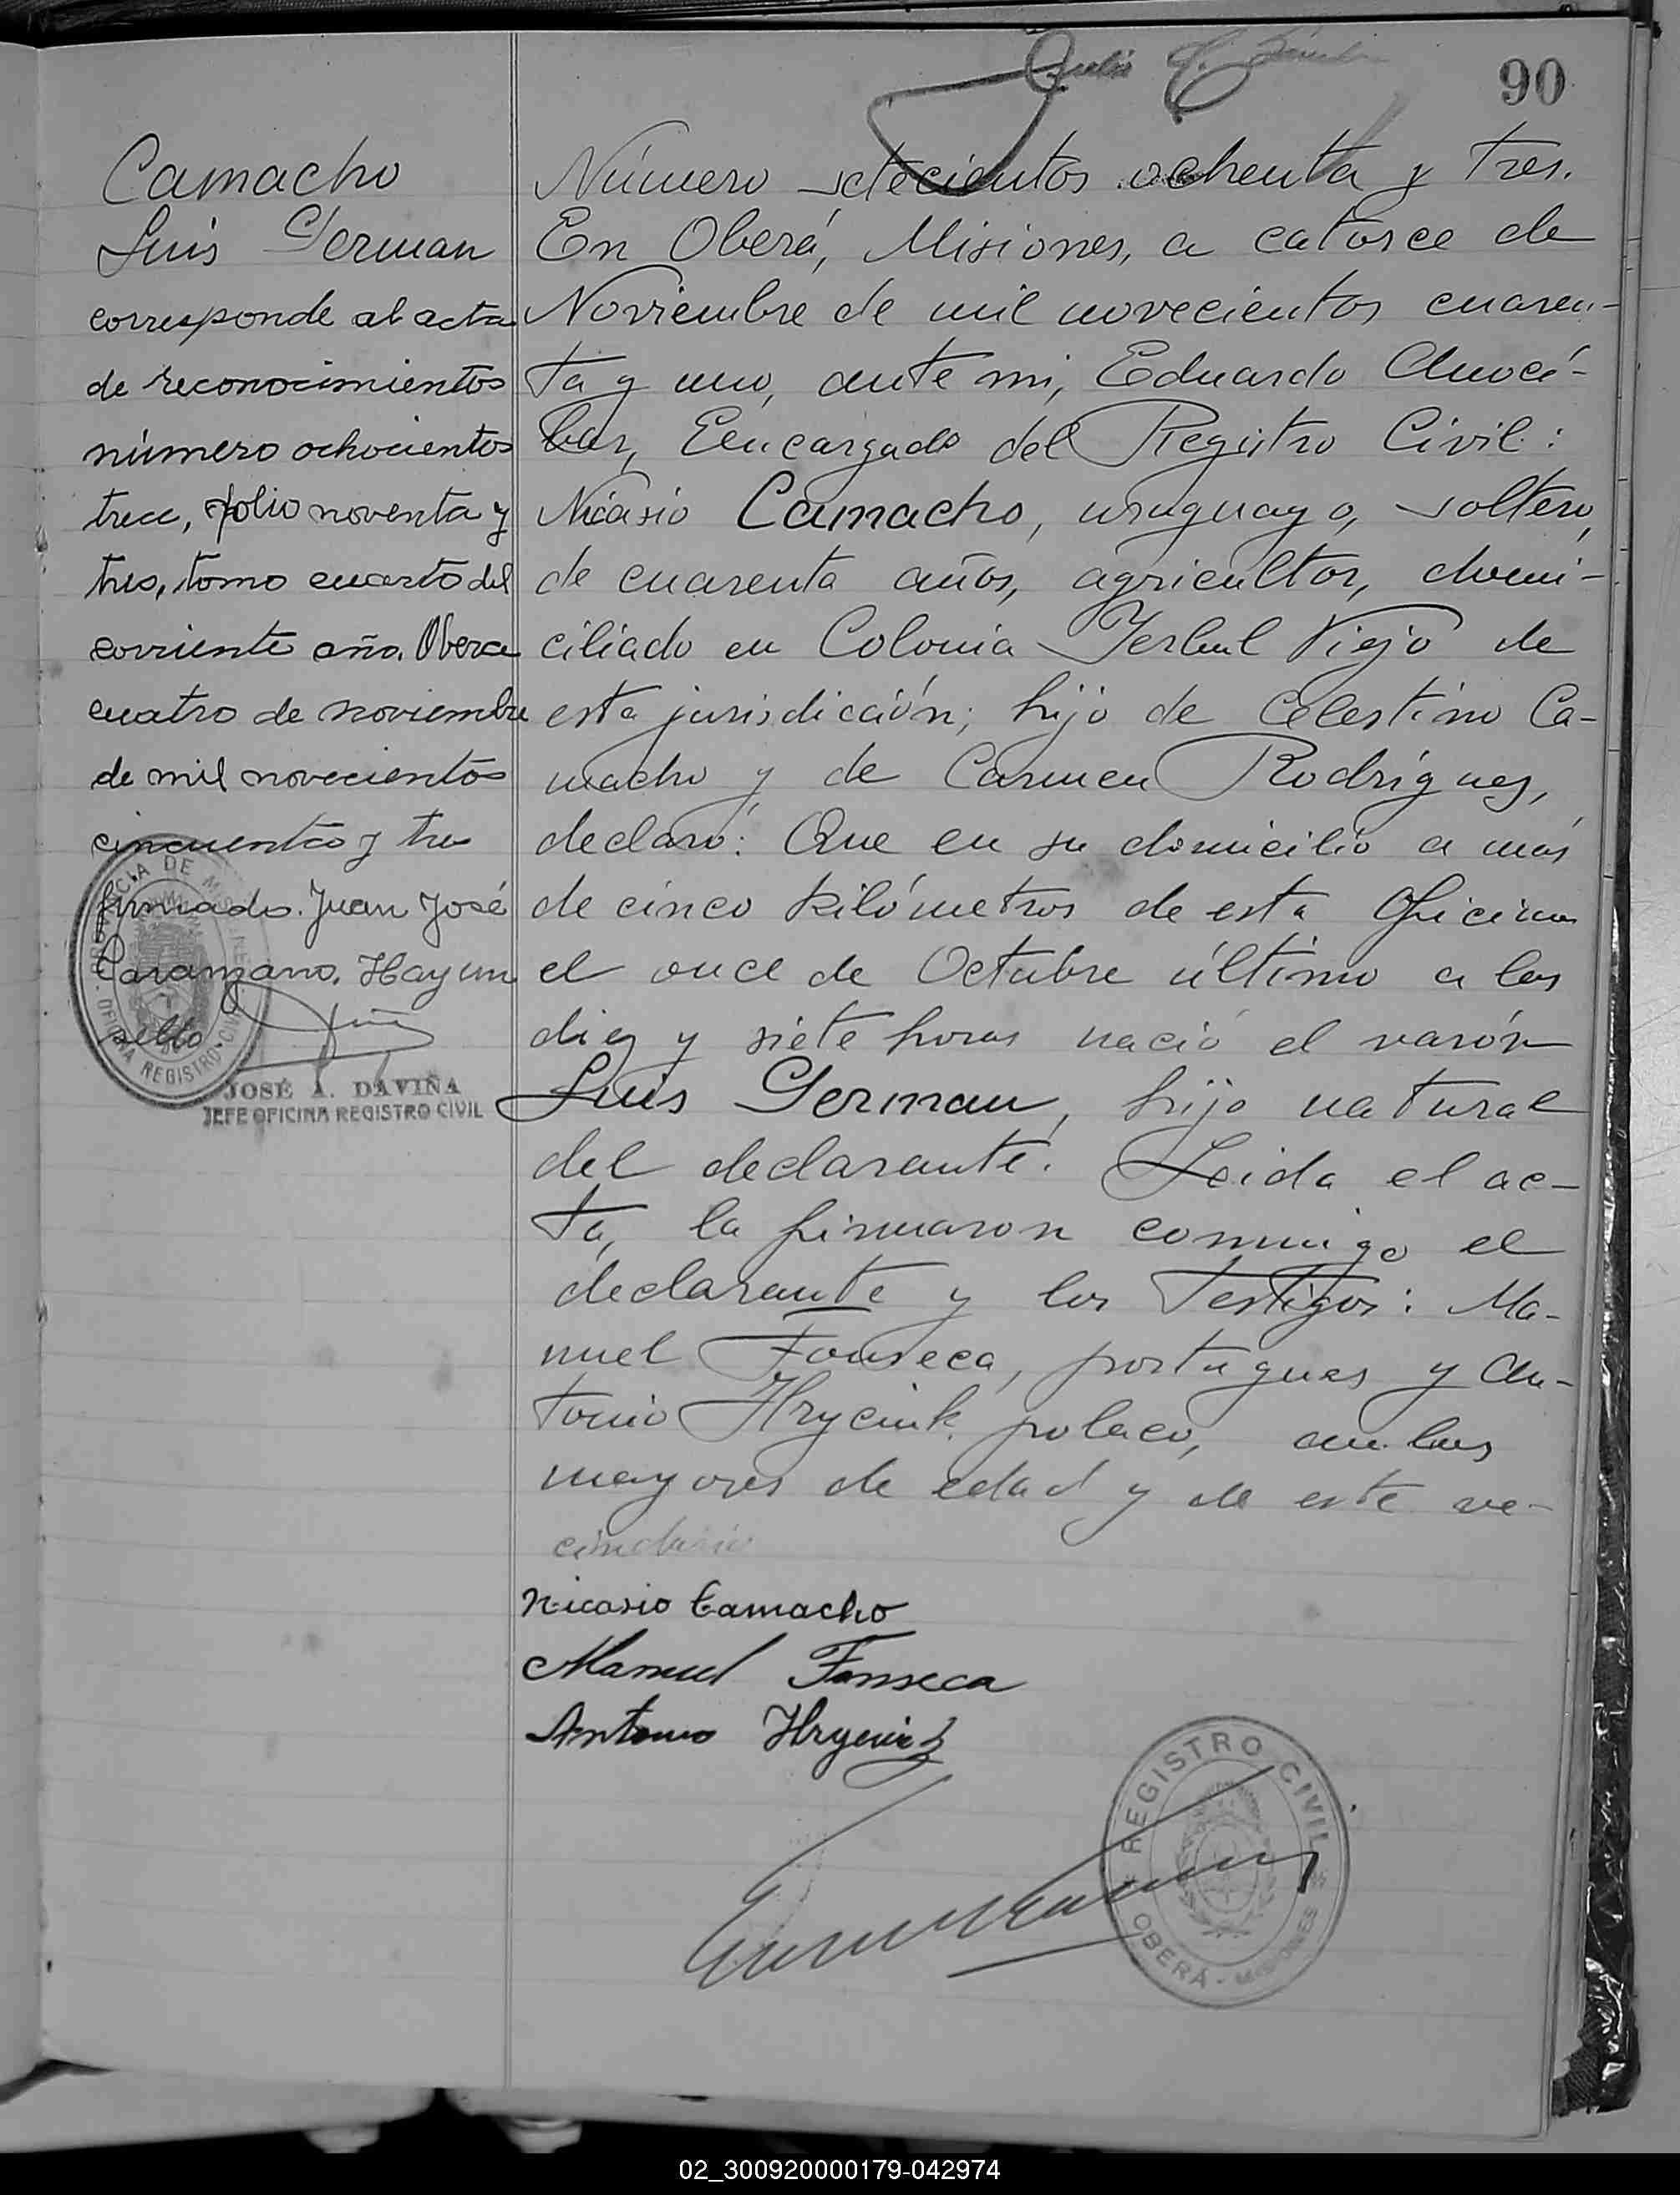 90
Camacho
Luis German
corresponde al acta
de reconocimientos
número ochocientos
trece, folio noventa y
tres, tomo cuarto del
corriente año. Obera
cuatro de noviembre
de mil novecientos
cincuenta y tres
firmado. Juan José
Hay un
sello
PROVINCIA DE MISIONES
OFICINA REGISTRO CIVIL
JOSÉ A. DAVIÑA
JEFE OFICINA REGISTRO CIVIL
Número setecientos ochenta y tres.
En Oberá, Misiones, a catorce de
Noviembre de mil novecientos cuaren-
ta y uno, ante mi, Eduardo
Encargado del Registro Civil:
Nicasio Camacho, uruguayo, soltero,
de cuarenta años, agricultor, domi-
ciliado en Colonia Yerbal Viejo de
esta jurisdicción; hijo de Celestino Ca-
macho y de Carmen Rodríguez,
declaró: Que en su domicilio a más
de cinco kilómetros de esta Oficina
el once de Octubre último a las
diez y siete horas nació el varón
Luis German, hijo natural
del declarante. Leida el ac-
ta, la firmaron conmigo el
declarante y los Testigos: Ma-
nuel Fonseca, portugues y An-
tonio Hryciuk, polaco, ambos
mayores de edad y de este ve-
cindario
Nicasio Camacho
Manuel Fonseca
Antonio
REGISTRO CIVIL
OBERÁ - MISIONES
02_300920000179-042974